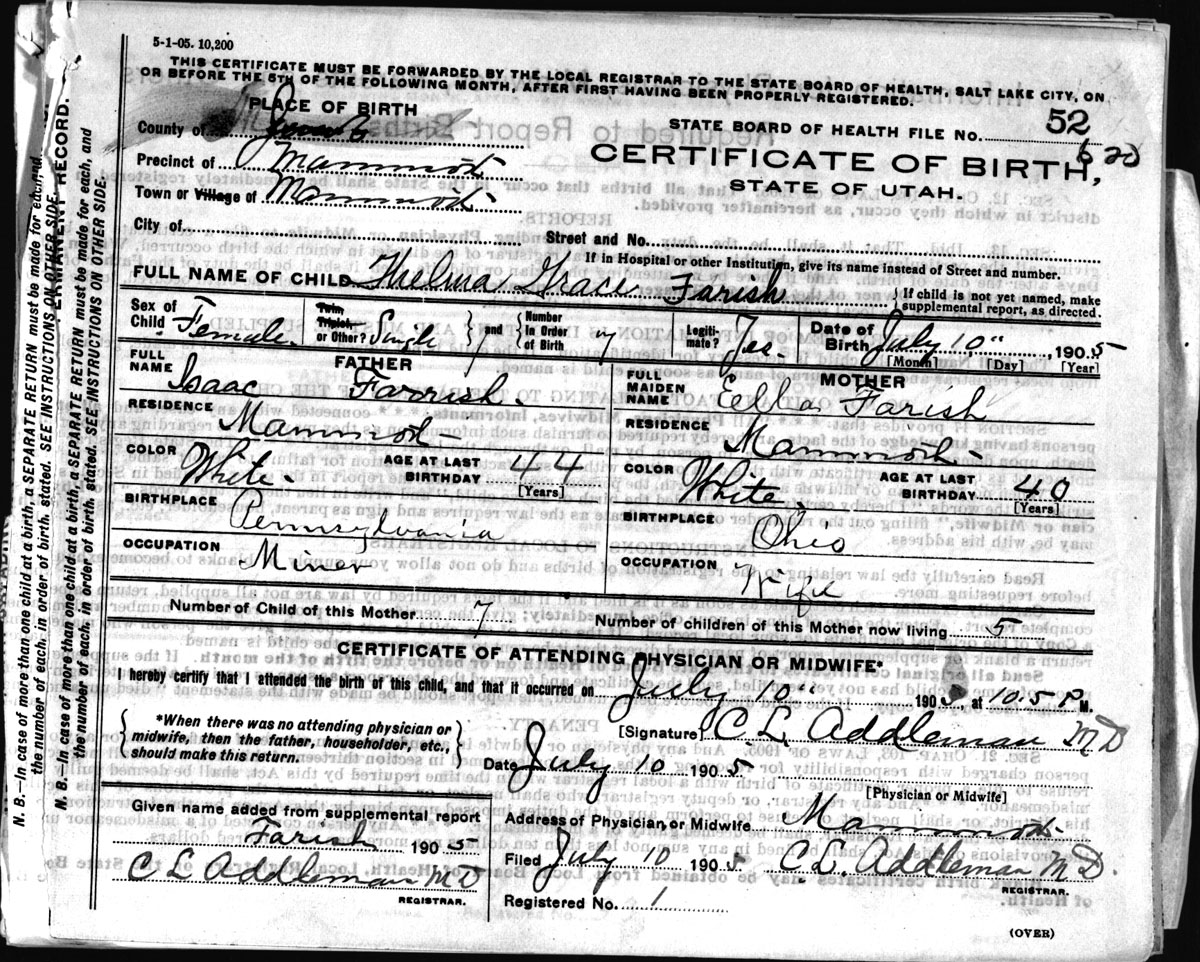 5-1-05. 10,200
THIS CERTIFICATE MUST BE FORWARDED BY THE LOCAL REGISTRAR TO THE STATE BOARD OF HEALTH, SALT LAKE CITY, ON
OR BEFORE THE 5TH OF THE FOLLOWING MONTH, AFTER FIRST HAVING BEEN PROPERLY REGISTERED.
PLACE OF BIRTH
County of
Precinct of Mammoth
Town or Village of Mammoth
City of
STATE BOARD OF HEALTH FILE NO. 52
CERTIFICATE OF BIRTH,
STATE OF UTAH.
Street and No.
If in Hospital or other Institution, give its name instead of Street and number.
FULL NAME OF CHILD Thelma Grace Farish
If child is not yet named, make
supplemental report, as directed.
Sex of Child Female
Twin, Triplet, or Other? Single
and
Number in Order of Birth
Legiti-mate? Yes.
Date of Birth July 10", 1905
[Month] [Day] [Year]
FATHER
FULL NAME Isaac Farrish.
RESIDENCE Mammoth
COLOR White. AGE AT LAST BIRTHDAY 44 [Years]
BIRTHPLACE Pennsylvania
OCCUPATION Miner
MOTHER
FULL MAIDEN NAME Eella Farish
RESIDENCE Mammoth
COLOR White AGE AT LAST BIRTHDAY 40 [Years]
BIRTHPLACE Ohio
OCCUPATION Wife
Number of Child of this Mother 7 Number of children of this Mother now living 5
CERTIFICATE OF ATTENDING PHYSICIAN OR MIDWIFE*
I hereby certify that I attended the birth of this child, and that it occurred on July 10" 1905, at 10.5 P M.
*When there was no attending physician or
midwife, then the father, householder, etc.,
should make this return.
[Signature] C. L. Addleman MD
Date July 10 1905
[Physician or Midwife]
Given name added from supplemental report
Farish 1905
C L Addleman MD
REGISTRAR.
Address of Physician or Midwife Mammoth
Filed July 10 1905 C. L. Addleman MD.
REGISTRAR.
Registered No. 1
(OVER)
N. B.—In case of more than one child at a birth, a SEPARATE RETURN must be made for each, and
the number of each, in order of birth, stated. SEE INSTRUCTIONS ON OTHER SIDE.
PERMANENT RECORD.
N. B.—In case of more than one child at a birth, a SEPARATE RETURN must be made for each, and
the number of each, in order of birth, stated. SEE INSTRUCTIONS ON OTHER SIDE.